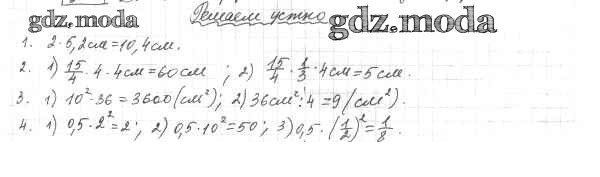 gdz.moda Решаем устно gdz.moda
1. 2·5,2см=10,4см.
2. 1) 15/4 · 4 · 4см=60см ; 2) 15/4 · 1/3 · 4см=5см.
3. 1) 10²·36=3600(см²); 2) 36см²:4=9(см²).
4. 1) 0,5·2²=2; 2) 0,5·10²=50; 3) 0,5·(1/2)²=1/8.